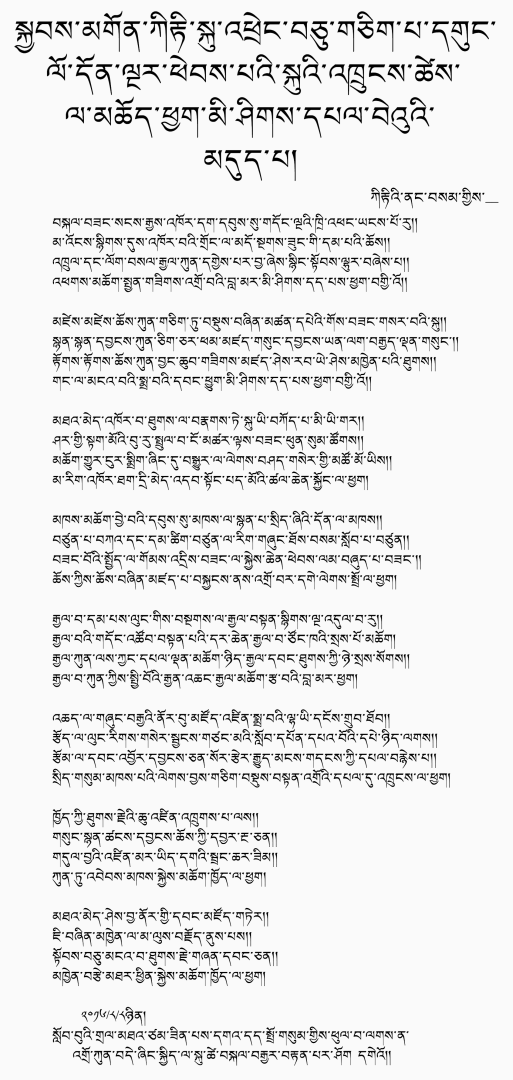 སྐྱབས་མགོན་ཀིརྟི་སྐུ་འཕྲེང་བཅུ་གཅིག་པ་དགུང་
ལོ་དོན་ལྔར་ཕེབས་པའི་སྐུའི་འཁྲུངས་ཚེས་
ལ་མཆོད་ཕྱག་མི་ཤིགས་དཔལ་བེའུའི་
མདུད་པ།
ཀིརྟིའི་ནང་བསམ་གྱིས་__
བསྐལ་བཟང་སངས་རྒྱས་འཁོར་དག་དབུས་སུ་གདོང་ལྔའི་ཁྲི་འཕང་ཡངས་པོ་རུ།།
མ་འོངས་སྙིགས་དུས་འཁོར་བའི་གྲོང་ལ་མདོ་སྔགས་ཟུང་གི་དམ་པའི་ཆོས།།
འཁྲུལ་དང་ལོག་བསལ་རྒྱལ་ཀུན་དགྱེས་པར་བྱ་ཞེས་སྙིང་སྟོབས་ལྷུར་བཞེས་པ།།
འཕགས་མཆོག་སྤྱན་གཟིགས་འགྲོ་བའི་བླ་མར་མི་ཤིགས་དད་པས་ཕྱག་བགྱི་འོ།།
མཛེས་མཛེས་ཆོས་ཀུན་གཅིག་ཏུ་བསྡུས་བཞིན་མཚན་དཔེའི་གོས་བཟང་གསར་བའི་སྐུ།།
སྙན་སྙན་དབྱངས་ཀུན་ཅིག་ཅར་ཕམ་མཛད་གསུང་དབྱངས་ཡན་ལག་བརྒྱད་ལྡན་གསུང་།།
རྟོགས་རྟོགས་ཆོས་ཀུན་བྱང་ཆུབ་གཟིགས་མཛད་ཤེས་རབ་ཡེ་ཤེས་མཁྱེན་པའི་ཐུགས།།
གང་ལ་མངའ་བའི་སྨྲ་བའི་དབང་ཕྱུག་མི་ཤིགས་དད་པས་ཕྱག་བགྱི་འོ།།
མཐའ་མེད་འཁོར་བ་ཐུགས་ལ་བརྣགས་ཏེ་སྐུ་ཡི་བཀོད་པ་མི་ཡི་གར།།
ཤར་གྱི་སྟག་མོའི་བུ་རུ་སྤྲུལ་བ་ངོ་མཚར་ལྟས་བཟང་ཕུན་སུམ་ཚོགས།།
མཆོག་གྱུར་ངུར་སྨྲིག་ཞིང་དུ་བསྒྱུར་ལ་ལེགས་བཤད་གསེར་གྱི་མཚོ་མོ་ཡིས།།
མ་རིག་འཁོར་ཐག་དྲི་མེད་འདབ་སྟོང་པད་མོའི་ཚལ་ཆེན་སྐྱོང་ལ་ཕྱག།
མཁས་མཆོག་བྱེ་བའི་དབུས་སུ་མཁས་ལ་སྙན་པ་སྲིད་ཞིའི་དོན་ལ་མཁས།།
བཙུན་པ་བཀའ་དང་དམ་ཚིག་བཙུན་ལ་རིག་གཞུང་ཐོས་བསམ་སློབ་པ་བཙུན།།
བཟང་བོའི་སྤྱོད་ལ་གོམས་འདྲིས་བཟང་ལ་སྐྱེས་ཆེན་ཕེབས་ལམ་བཞུད་པ་བཟང་།།
ཆོས་ཀྱིས་ཆོས་བཞིན་མཛད་པ་བསྐྱངས་ནས་འགྲོ་བར་དགེ་ལེགས་སྤྲོ་ལ་ཕྱག།
རྒྱལ་བ་དམ་པས་ལུང་གིས་བསྔགས་ལ་རྒྱལ་བསྟན་སྙིགས་ལྔ་འདུལ་བ་རུ།།
རྒྱལ་བའི་གདོང་འཚོབ་བསྟན་པའི་དར་ཆེན་རྒྱལ་བ་ཙོང་ཁའི་སྲས་པོ་མཆོག།
རྒྱལ་ཀུན་ལས་ཀྱང་དཔལ་ལྡན་མཆོག་ཉིད་རྒྱལ་དབང་ཐུགས་ཀྱི་ཉེ་སྲས་སོགས།།
རྒྱལ་བ་ཀུན་ཀྱིས་སྤྱི་བོའི་རྒྱན་འཆང་རྒྱལ་མཆོག་རྩ་བའི་བླ་མར་ཕྱག།
འཆད་ལ་གཞུང་བརྒྱའི་ནོར་བུ་མཛོད་འཛིན་སྨྲ་བའི་ལྷ་ཡི་དངོས་གྲུབ་ཐོབ།།
རྩོད་ལ་ལུང་རིགས་གསེར་སྦྱངས་གཙང་མའི་སློབ་དཔོན་དཔའ་བོའི་དཔེ་ཉིད་ལགས།།
རྩོམ་ལ་དབང་འབྱོར་དབྱངས་ཅན་སོར་རྩེར་རྒྱུད་མངས་གདངས་ཀྱི་དཔལ་བརྙེས་པ།།
སྲིད་གསུམ་མཁས་པའི་ལེགས་བྱས་གཅིག་བསྡུས་བསྟན་འགྲོའི་དཔལ་དུ་འཁྲུངས་ལ་ཕྱག།
ཁྱོད་ཀྱི་ཐུགས་རྗེའི་ཆུ་འཛིན་འཁྲུགས་པ་ལས།།
གསུང་སྙན་ཚངས་དབྱངས་ཆོས་ཀྱི་དབྱར་རྔ་ཅན།།
གདུལ་བྱའི་འཛིན་མར་ཡིད་དགའི་སྦྲང་ཆར་ཟིམ།།
ཀུན་ཏུ་འབེབས་མཁས་སྐྱེས་མཆོག་ཁྱོད་ལ་ཕྱག།
མཐའ་མེད་ཤེས་བྱ་ནོར་གྱི་དབང་མཛོད་གཏེར།།
ཇི་བཞིན་མཁྱེན་ལ་མ་ལུས་བརྗོད་ནུས་པས།།
སྟོབས་བཅུ་མངའ་བ་ཐུགས་རྗེ་གཞན་དབང་ཅན།།
མཁྱེན་བརྩེ་མཐར་ཕྱིན་སྐྱེས་མཆོག་ཁྱོད་ལ་ཕྱག།
༢༠༡༦/༨/༨ཉིན།
སློབ་བུའི་གྲལ་མཐའ་ཙམ་ཟིན་པས་དགའ་དད་སྤྲོ་གསུམ་གྱིས་ཕུལ་བ་ལགས་ན་
འགྲོ་ཀུན་བདེ་ཞིང་སྐྱིད་ལ་སྐུ་ཚེ་བསྐལ་བརྒྱར་བརྟན་པར་ཤོག དགེའོ།།